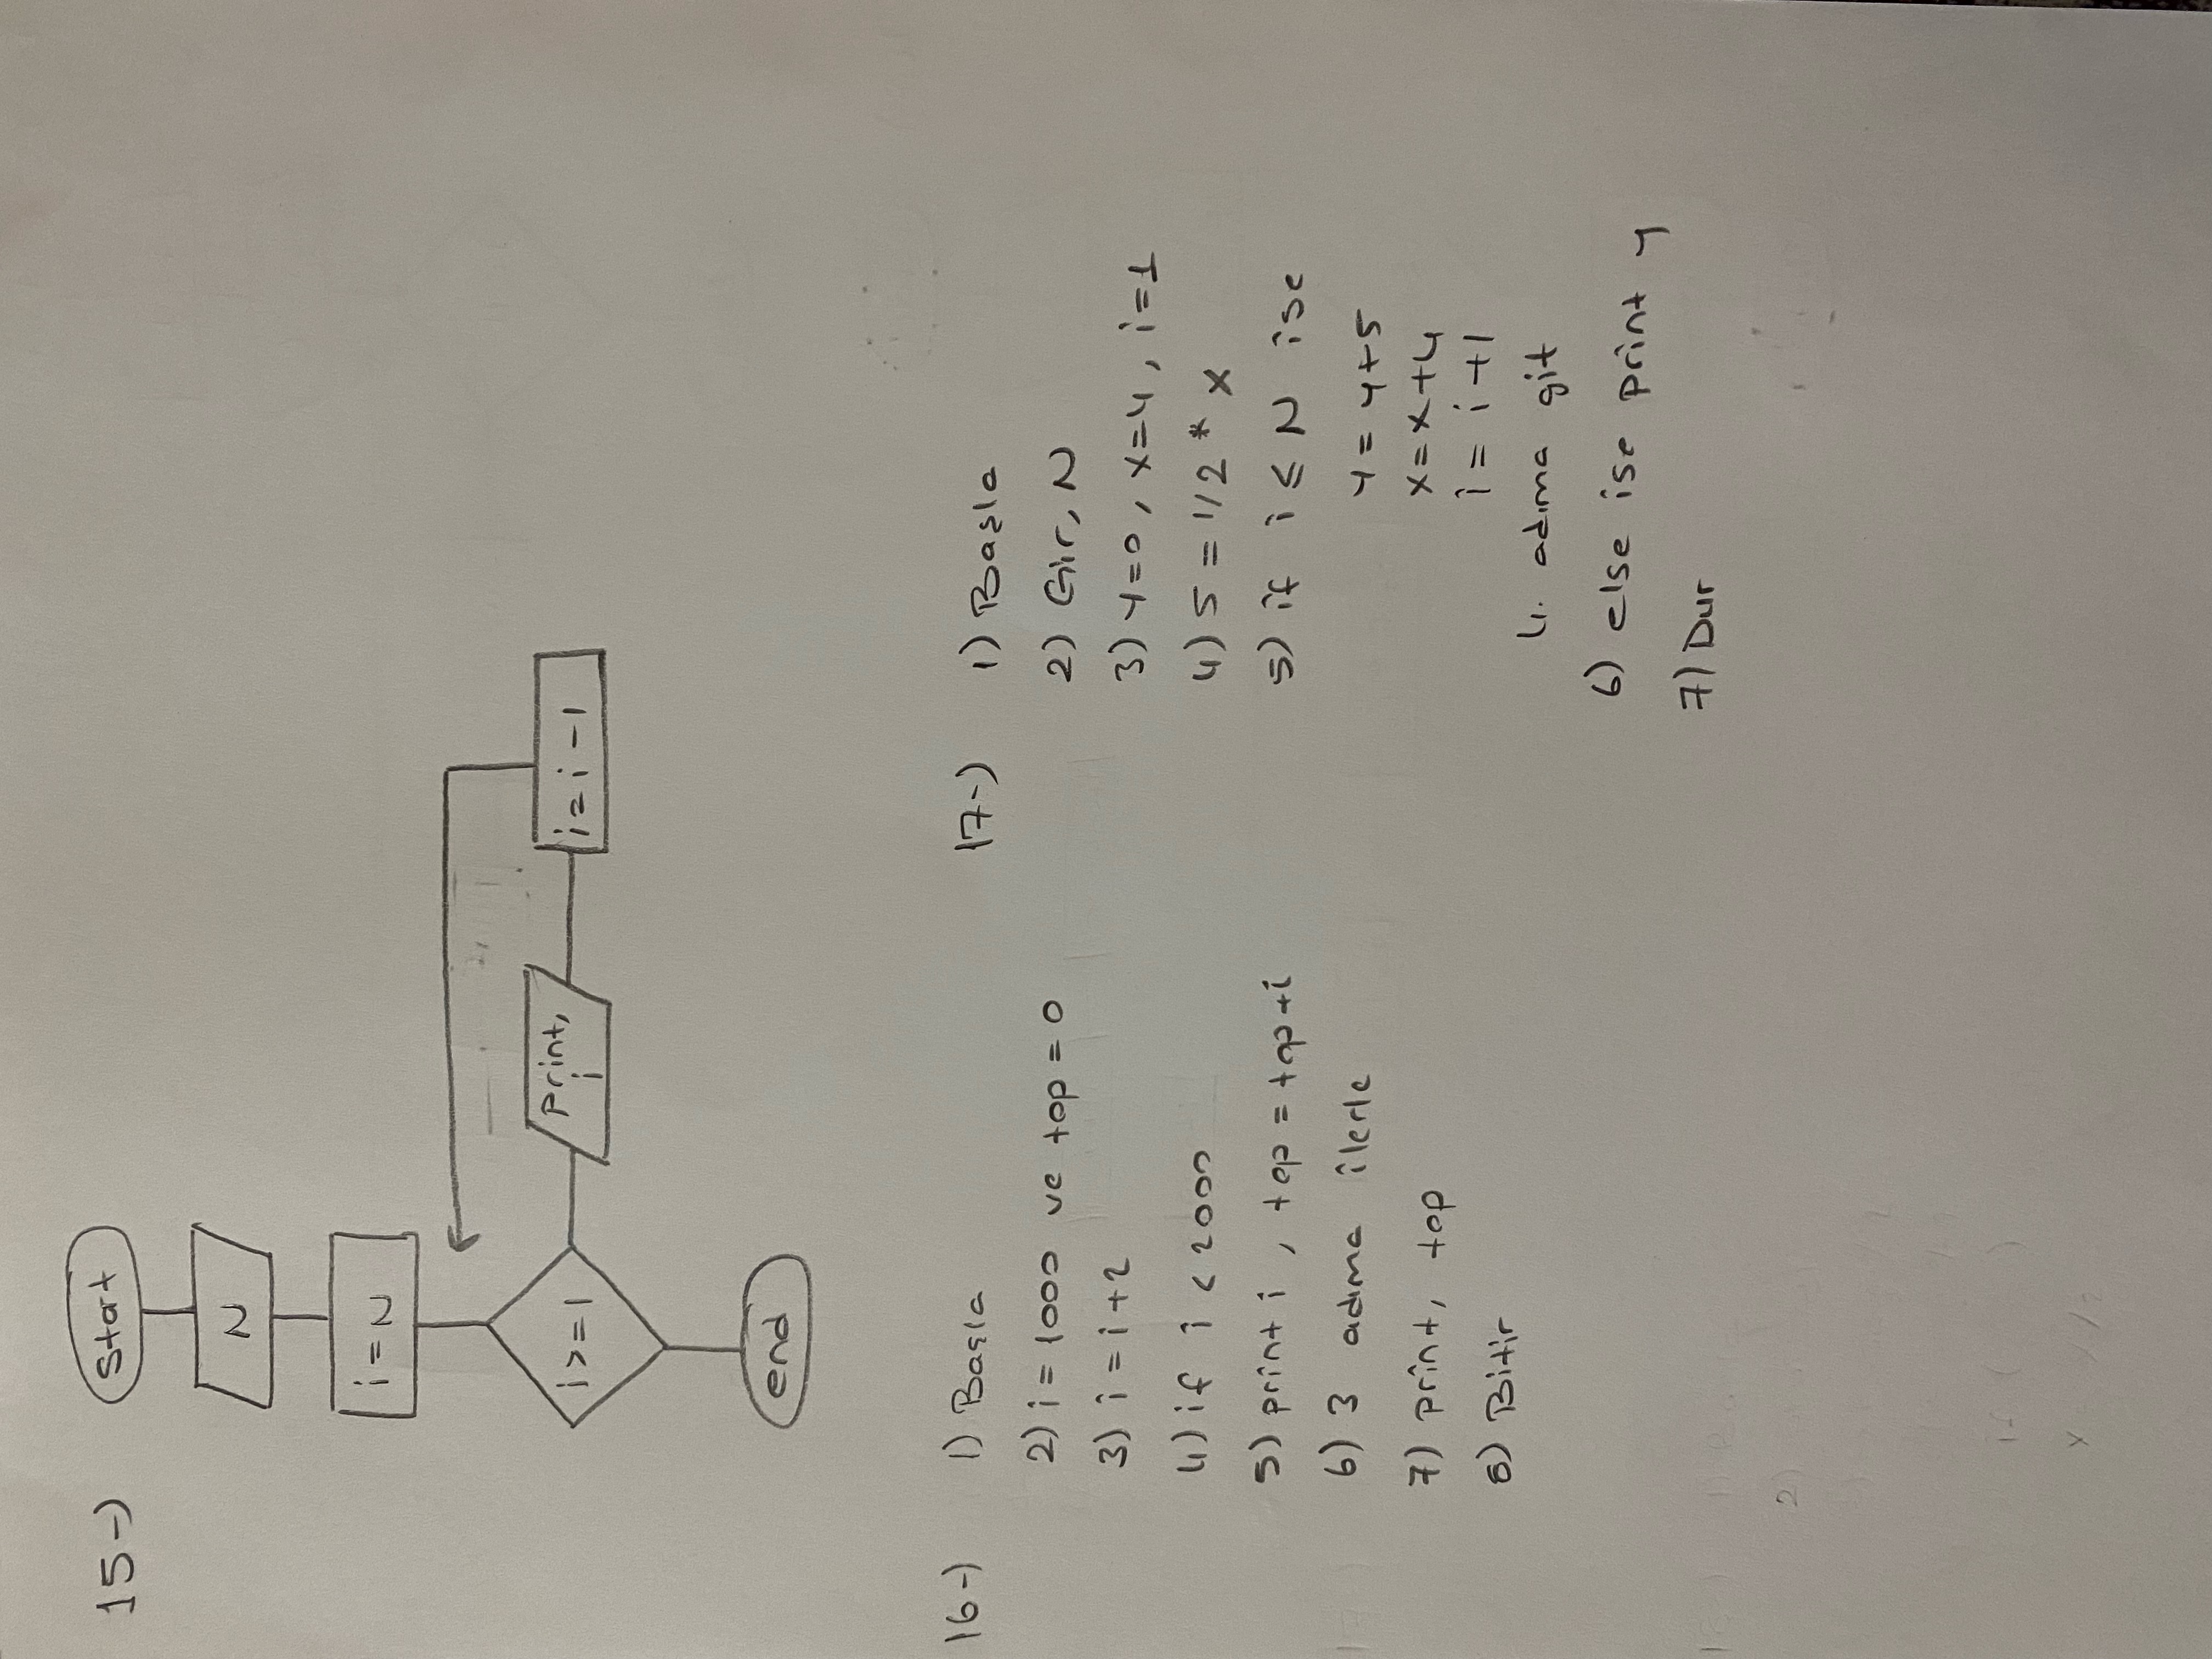 15-)
Start
N
i = N
i >= 1
print, i
i = i - 1
end
16-)
1) Başla
2) i = 1000 ve top = 0
3) i = i + 2
4) if i < 2000
5) print i , top = top + i
6) 3 adıma ilerle
7) print, top
8) Bitir
17-)
1) Başla
2) Gir, N
3) y=0 , x=4 , i=1
4) S = 1/2 * x
5) if i ≤ N ise
y = y+S
x = x+4
i = i +1
4. adıma git
6) else ise print y
7) Dur